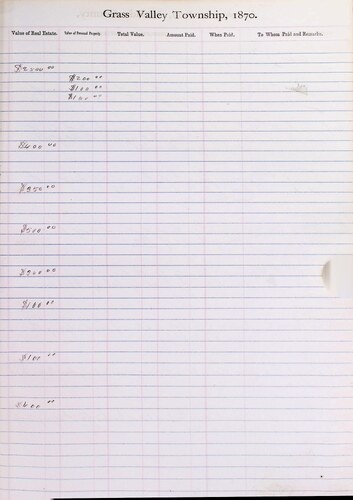 Grass Valley Township, 1870.
Value of Real Estate. Value of Personal Property. Total Value. Amount Paid. When Paid. To Whom Paid and Remarks.
$200 00
$100 00
$100 00
$400 00
$350 00
$500 00
$100 00
$600 00